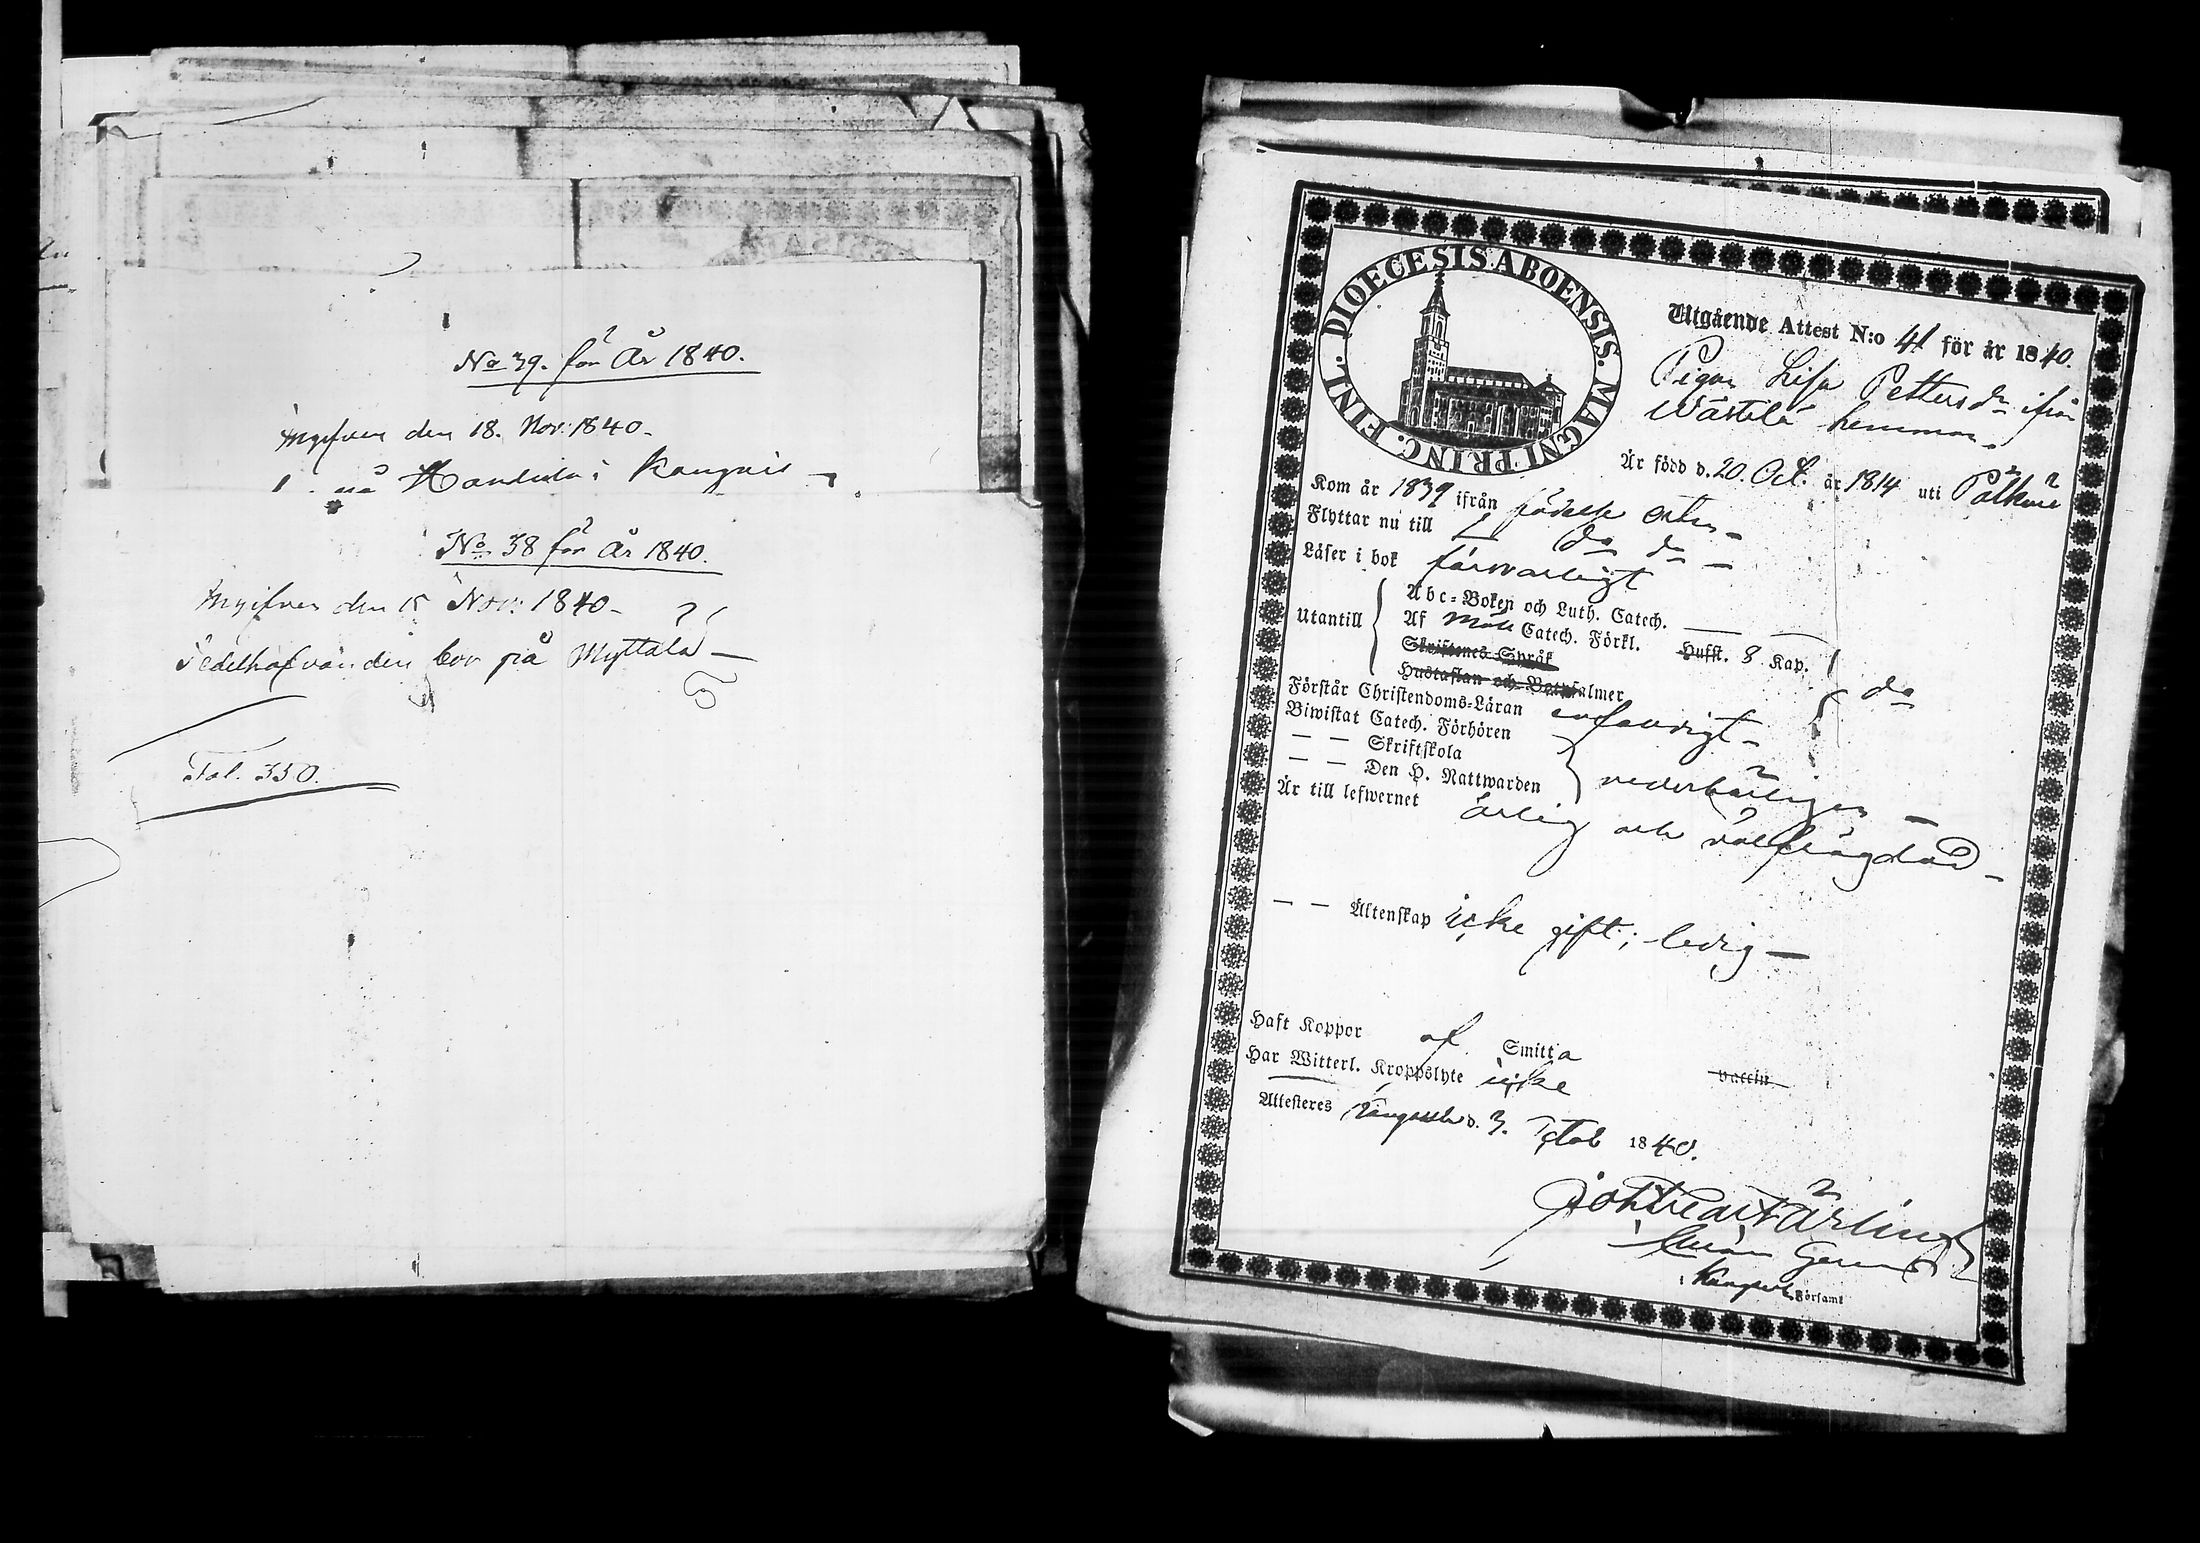 No 39. för År 1840.
Angifven den 18. Nov: 1840.
på Handula i Kangais
No 38 för År 1840.
Angifven den 15 Nov: 1840.
Sedelhafvanden bor på Myttälä
Fol. 350.
DIOECESIS ABOENSIS. MAGNI PRINC. FINL.
Utgående Attest N:o 41 för år 1840.
Pigan Lisa Pettersdr ifrån
Wästilä hemman.
Är född d. 20. Oct. år 1814 uti Pälkäne
Kom år 1839 ifrån födelse orten
Flyttar nu till do do
Läser i bok försvarligt
Utantill
Abc-Boken och Luth. Catech.
Af Catech. Förkl. Husst. 8 Kap.
Skriftenes Språk
Hustaflan och Botpsalmer
do
Förstår Christendoms-Läran enfaldigt
Biwistat Catech. Förhören
— — Skriftskola
— — Den H. Nattwarden
vederbörligen
Är till lefwernet ärlig och välfrägdad
— — Äktenskap icke gift; ledig
Haft Koppor af Smitta vaccin
Har Witterl. Kroppslyte icke
Attesteres Kangasala d. 3. 1840.
Församl